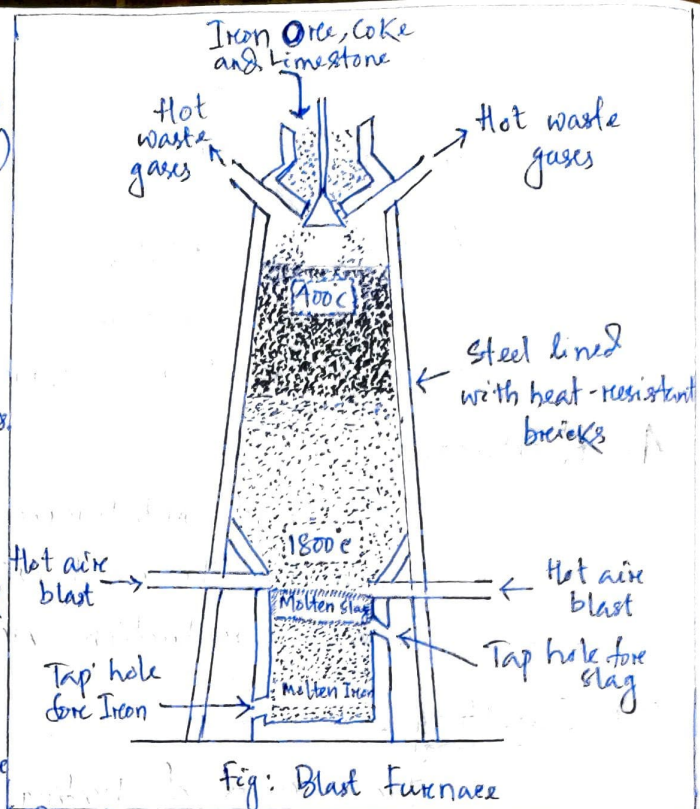 Iron Ore, Coke
and Limestone
Hot
waste
gases
Hot waste
gases
400°C
Steel lined
with heat-resistant
bricks
1800°C
Hot air
blast
Hot air
blast
Molten Slag
Tap hole for
slag
Tap hole
for Iron
Molten Iron
Fig: Blast Furnace